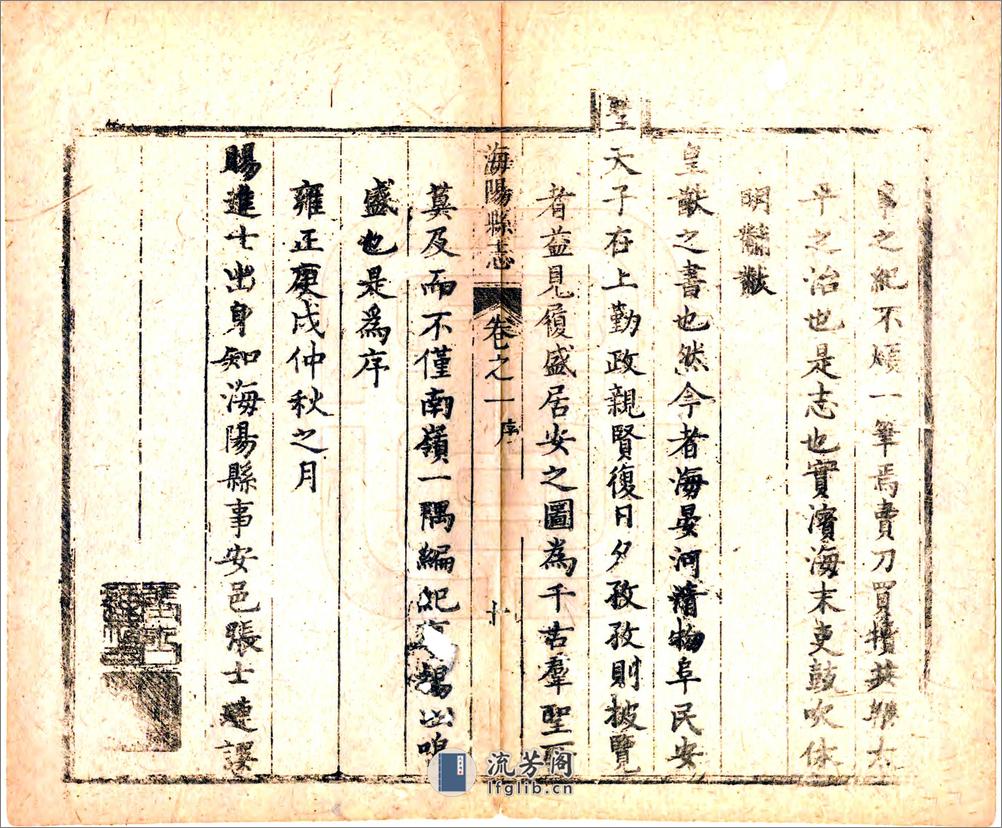 之紀不煩一筆焉費刀買犢共
平之治也是志也實濱海末吏鼓吹休
明黼黻
皇猷之書也然今者海晏河清物阜民安
聖天子在上勤政親賢復日夕孜孜則披覽
者益見履盛居安之圖為千古羣聖
海陽縣志 卷之一 序 十
莫及而不僅南嶺一隅編
盛也是為序
雍正庚戌仲秋之月
賜進士出身知海陽縣事安邑張士璉謹
流芳阁
lfglib.cn